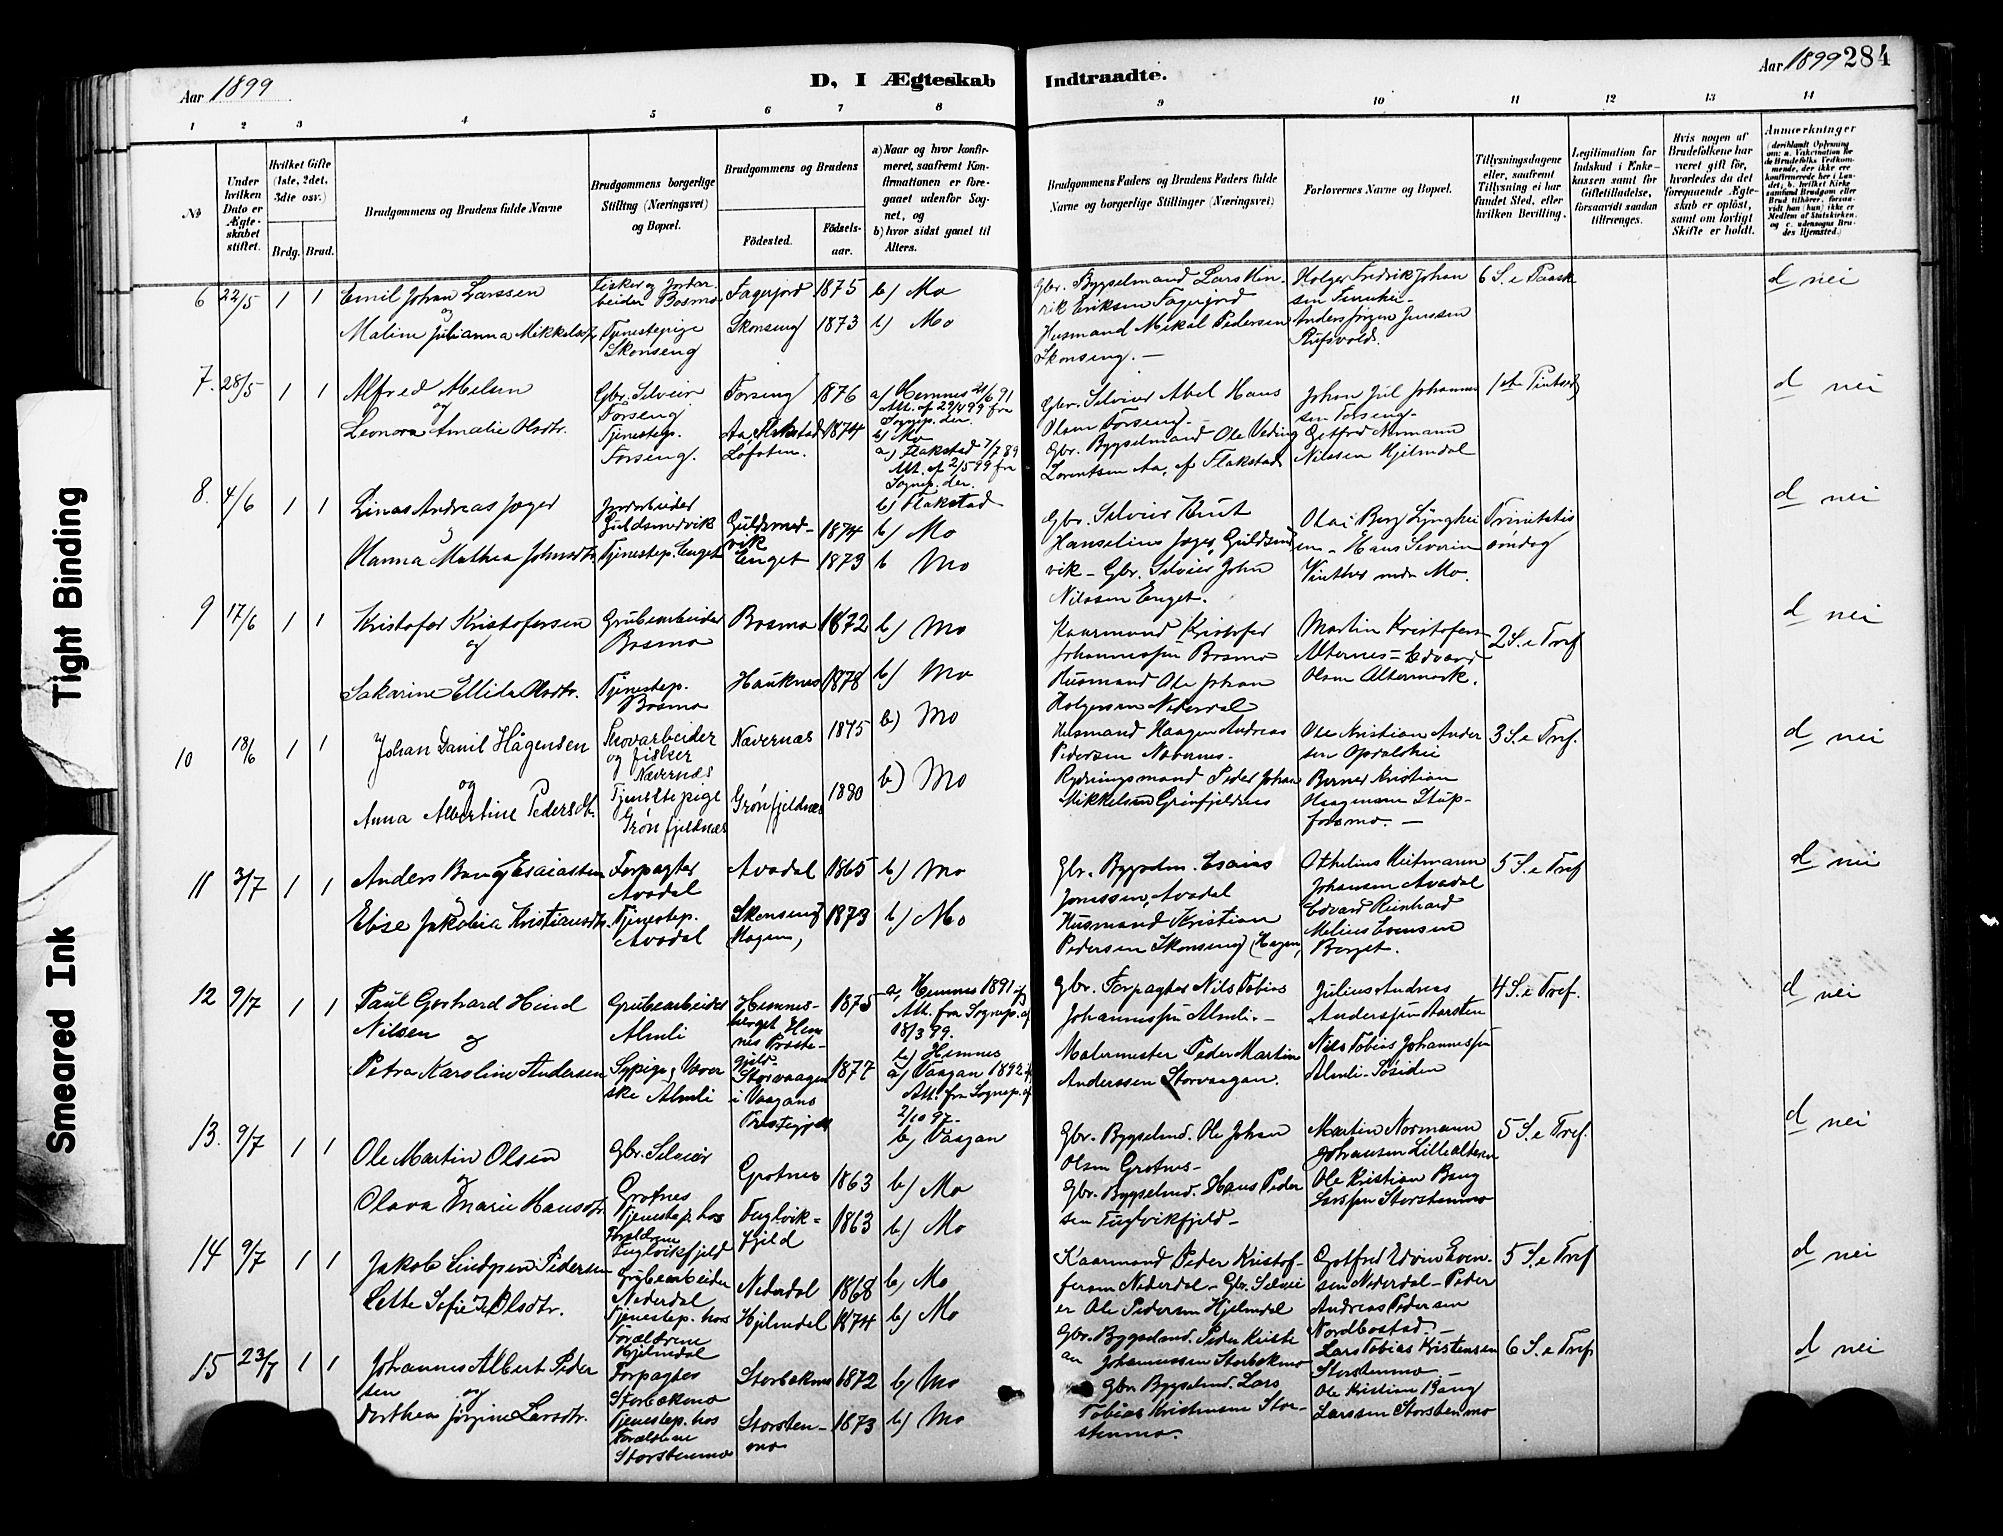 Aar 1899
D, I Ægteskab Indtraadte.
Aar 1899 284
1 2 3 4 5 6 7 8 9 10 11 12 13 14
№
Under hvilken Dato er Ægteskabet stiftet.
Hvilket Gifte (1ste, 2det, 3dte osv.)
Brdg. Brud.
Brudgommens og Brudens fulde Navne
Brudgommens borgerlige Stilling (Næringsvei) og Bopæl.
Brudgommens og Brudens
Födested. Födselsaar.
a) Naar og hvor konfirmeret, saafremt Konfirmationen er foregaaet udenfor Sognet, og
b) hvor sidst gaaet til Alters.
Brudgommens Faders og Brudens Faders fulde Navne og borgerlige Stillinger (Næringsvei)
Forlovernes Navne og Bopæl.
Tillysningsdagene eller, saafremt Tillysning ei har fundet Sted, efter hvilken Bevilling.
Legitimation for Indskud i Enkekassen samt for Giftetilladelse, forsaavidt saadan tiltrænges.
Hvis nogen af Brudefolkene har været gift för, hvorledes da det foregaaende Ægteskab er oplöst, samt om lovligt Skifte er holdt.
Anmærkninger
(deriblandt Oplysning om: a. Vakcination for de Brudefolks Vedkommende, der ikke ere konfirmerede her i Landet; b. hvilket Kirkesamfund Brudgom eller Brud tilhörer, forsaavidt han (hun) ikke er Medlem af Statskirken, og c. udensogns Brudes Hjemsted.)
6 22/5 1 1 Emil Johan Larssen
og
Maline Julianna Mikkelsdtr
Fisker og Jordarbeider Bosmo
Tjenestepige Skonseng
Fagerjord 1875 b) Mo
Skonseng 1873 b) Mo
Gbr. Bygselmand Lars Hinrik Eriksen Fagerjord
Husmand Mikal Pedersen Skonseng. —
Holger Fredrik Johansen
Anders Jörgen Jenssen
6 S. e Paask
d nei
7. 28/5 1 1 Alfred Abelsen
og
Leonora Amalie Olsdtr.
Gbr. Selveier Forseng
Tjenestep. Forseng.
Forseng 1876 a) Hemnes 21/6 91
Att. af 29/4 99 fra Sognep. der.
b) Mo
Aa, Flakstad Lofoten. 1874
a) Flakstad 7/7 89
Att. af 2/5 99 fra Sognep. der.
b) Flakstad
Gbr. Selveier Abel Hans Olsen Forseng -
Gbr. Bygselmand Ole Veding Lorentsen Aa, af Flakstad
Johan Jul Johannessen Forseng -
Gotfred Normann Nilssen Hjelmdal
1ste Pintsed
d nei
8. 4/6 1 1 Linas Andreas Jæger
og
Hanna Mathea Johnsdtr.
Jordarbeider Guldsmedvik
Tjenestep. Enget
Guldsmedvik 1874 b) Mo
Enget 1873 b Mo
Gbr. Selveier Knut Hanselius Jæger Guldsmedvik - Gbr. Selveier John Nilssen Enget.
Olai Berg Lyngheien - Hans Severin Vinther nedre Mo.
Trinitatis söndag
d nei
9 17/6 1 1 Kristofer Kristofersen
og
Sakarine Ellida Olsdtr.
Grubearbeider Bosmo
Tjenestep. Bosmo
Bosmo 1872 b) Mo
Hauknes 1878 b) Mo
Kaarmand Kristofer Johannessen Bosmo
Husmand Ole Johan Holgersen Nederdal
Martin Kristofers Alternes = Edvard Olsen Altermark.
2 S. e Tref
d nei
10 18/6 1 1 Johan Danil Hågensen
og
Anna Albertine Pedersdtr.
Skovarbeider og fisker Nævernes
Tjenestepige Grønfjeldnæs
Nævernæs 1875 b) Mo
Grønfjeldnæs 1880 b) Mo
Husmand Haagen Andreas Pedersen Nævernes.
Rydningsmand Peder Johan Mikkelsen Grönfjeldnes
Ole Kristian Andersen
Berner Kristian Haagensen Stupforsmo. —
3 S. e Tref.
d nei
11 3/7 1 1 Anders Bang Esaiassen
og
Elise Jakobia Kristiansdtr.
Forpagter Avadal
Tjenestep. Avadal
Avadal 1865 b) Mo
Skonseng Hagen, 1873 b) Mo
Gbr. Bygselm. Esaias Jonassen, Avadal
Husmand Kristian Pedersen Skonseng (Hagen,
Othelius Heitmann Johansen Avadal
Edvard Reinhard Melius Evensen Berget.
5 S. e Tref
d nei
12 9/7 1 1 Paul Gerhard Hind Nilsen og
Petra Karoline Andersen
Grubearbeider Almli
Sypige, Væverske Almli
Hemnesberget Hemnes Præstegjeld. 1875
a, Hemnes 1891 if Att. fra Sognep. af 18/3 99.
b) Hemnes
Storvaagen i Vaagans Præstegjeld 1877
a) Vaagan 1892 if Att. fra Sognep. af 2/10 97.
b) Vaagan
Gbr. Forpagter Nils Tobias Johannessen Almli. —
Malermester Peder Martin Anderssen Storvaagan.
Julius Andreas Anderssen
Nils Tobias Johannessen Almli - Søsiden
4 S. e Tref.
d nei
13. 9/7 1 1 Ole Martin Olsen
og
Olava Marie Hansdtr
Gbr. Selveier Grotnes
Tjenestep. hos Forældrene Fuglvikfjeld
Grotnes 1863 b) Mo
Fuglvikfjeld 1863 b) Mo
Gbr. Bygselmd. Ole Johan Olsen Grotnes -
Gbr. Bygselmd. Hans Pedersen Fuglvikfjeld -
Martin Normann Johansen Lillealteren
Ole Kristian Bang Larssen Storstenmo
5 S. e Tref.
d nei
14 9/7 1 1 Jakob Lindgren Pedersen
og
Lette Sofie Olsdtr.
Grubearbeider Nederdal
Tjenestep. hos Forældrene Hjelmdal
Nederdal 1868 b) Mo
Hjelmdal 1874 b) Mo
Kaarmand Peder Kristofersen Nederdal - Gbr. Selveier Ole Pedersen Hjelmdal
Gotfred Edvin Evensen Nederdal - Peder Andreas Pedersen Nordbostad. -
5 S. e Tref
d nei
15 23/7 1 1 Johannes Albert Pedersen
og
Dorthea Jörgine Larsdtr.
Forpagter Storbækmo
Tjenestep. hos Forældrene Storstenmo
Storbækmo 1872 b) Mo
Storstenmo 1873 b) Mo
Gbr. Bygselmd. Peder Kristian Johannessen Storbækmo
Gbr. Bygselmd. Lars Tobias Kristensen Storstenmo.
Lars Tobias Kristensen Storstenmo -
Ole Kristian Bang Larssen Storstenmo
6 S. e Tref
d nei
Tight Binding
Smeared Ink